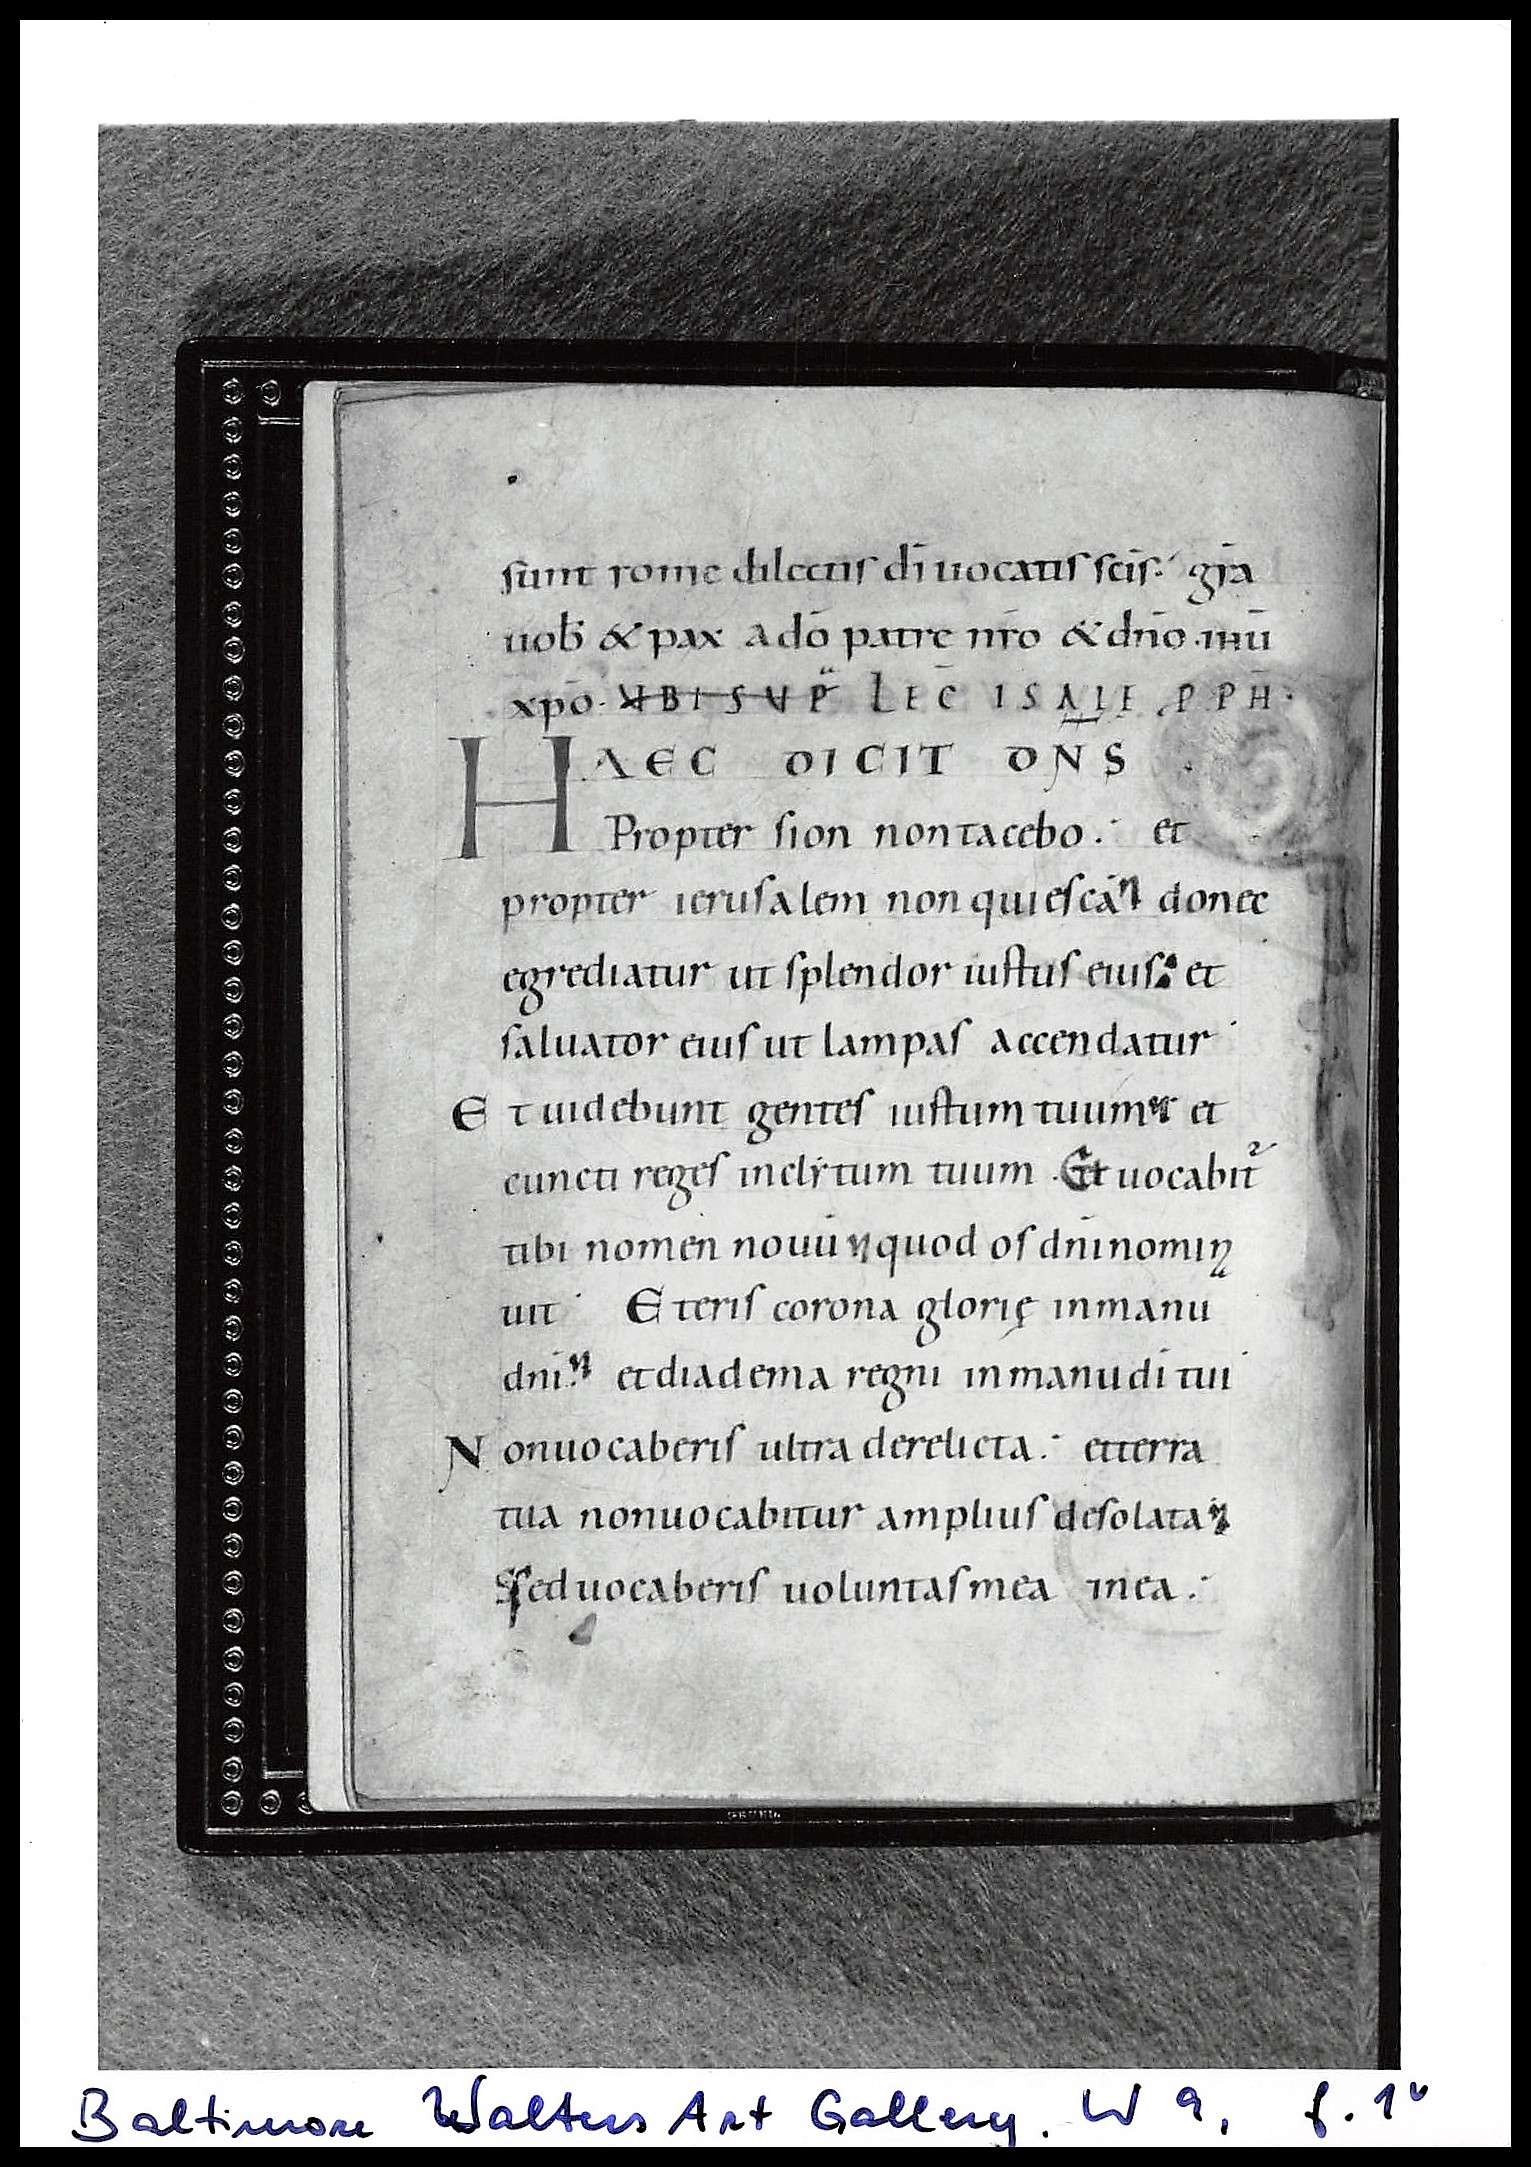 sunt rome dilectis dī uocatis scīs. grā
uob & pax a dō patre nrō & dnō ihū
xpō. UBI SUP LEC ISAIE PPH.
HAEC DICIT DNS
Propter sion non tacebo. et
propter ierusalem non quiescā donec
egrediatur ut splendor iustus eius. et
saluator eius ut lampas accendatur
Et uidebunt gentes iustum tuum et
cuncti reges inclytum tuum. Et uocabit
tibi nomen nouū quod os dnī nomin
uit Et eris corona glorię in manu
dnī. et diadema regni in manu dī tui
Non uocaberis ultra derelicta. et terra
tua non uocabitur amplius desolata
Sed uocaberis uoluntas mea inea.
Baltimore Walters Art Gallery. W 9, f. 1v